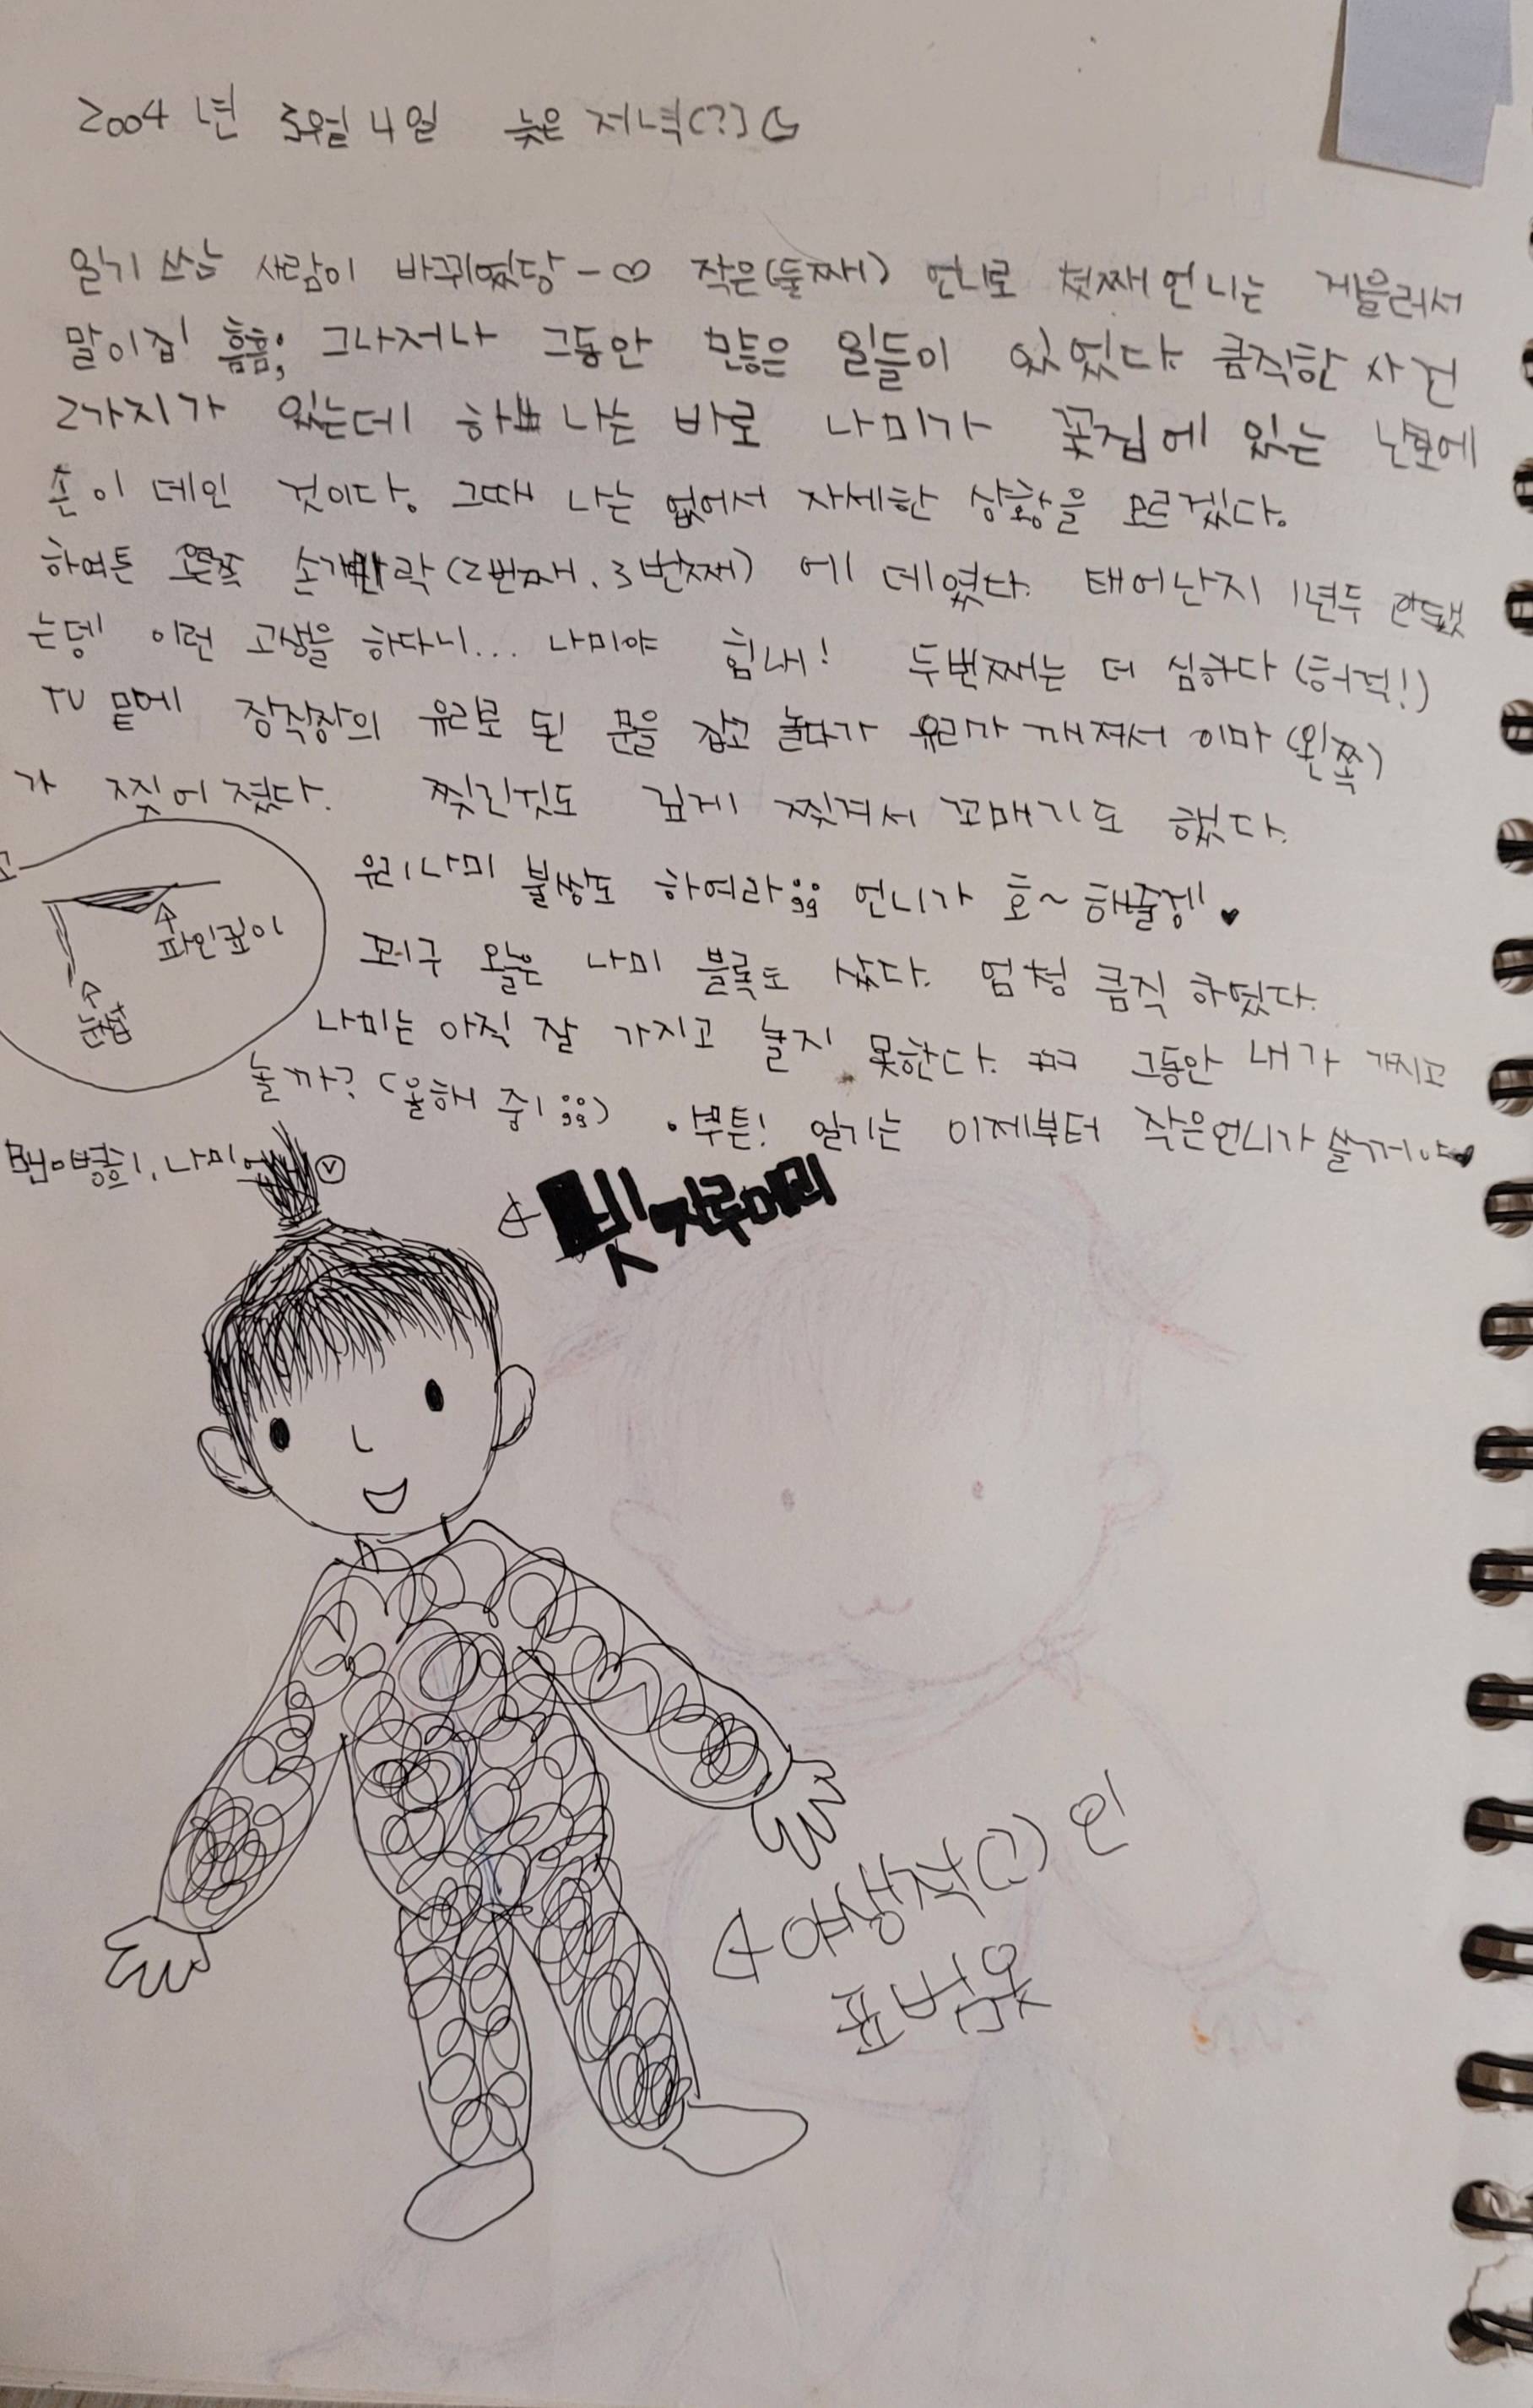 2004년 3월 4일 늦은 저녁(?)
일기 쓰는 사람이 바뀌었당-♡ 작은(둘째) 언니로 첫째언니는 게을러서
말이집! 흠흠; 그나저나 그동안 많은 일들이 있었다. 큼직한 사건
2가지가 있는데 하나는 바로 나미가 꽃집에 있는 난로에
손이 데인 것이다. 그때 나는 없어서 자세한 상황을 모르겠다.
하여튼 왼쪽 손가락(2번째, 3번째)에 데였다. 태어난지 1년두 안됐
는뎅 이런 고생을 하다니... 나미야 힘내! 두번째는 더 심하다(허걱!)
TV 밑에 장식장의 유리로 된 문을 잡고 놀다가 유리가 깨져서 이마(왼쪽)
가 찢어졌다. 찢긴것도 깊게 찢겨서 꼬매기도 했다.
우리나미 불쌍도 하여라;; 언니가 호~ 해줄겡!♥
파인깊이
눈썹
오늘은 나미 블록도 샀다. 엄청 큼직 하였다.
나미는 아직 잘 가지고 놀지 못한다. ㅋㅋ 그동안 내가 가지고
놀까? (올해 중1;;) 일기는 이제부터 작은언니가 쓸꺼야♥
빗자루머리
야생적(?)인
표범옷